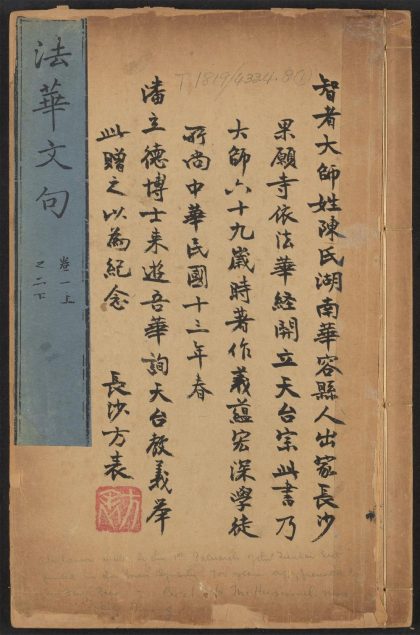 T.1819/4324.8(1)
智者大師姓陳氏湖南華容縣人出家長沙
果願寺依法華經開立天台宗此書乃
大師六十九歲時著作義蘊宏深學徒
所尚中華民國十三年春
潘立德博士来遊吾華詢天台教義舉
此贈之以為紀念 長沙方表
法華文句
卷一上
之二下